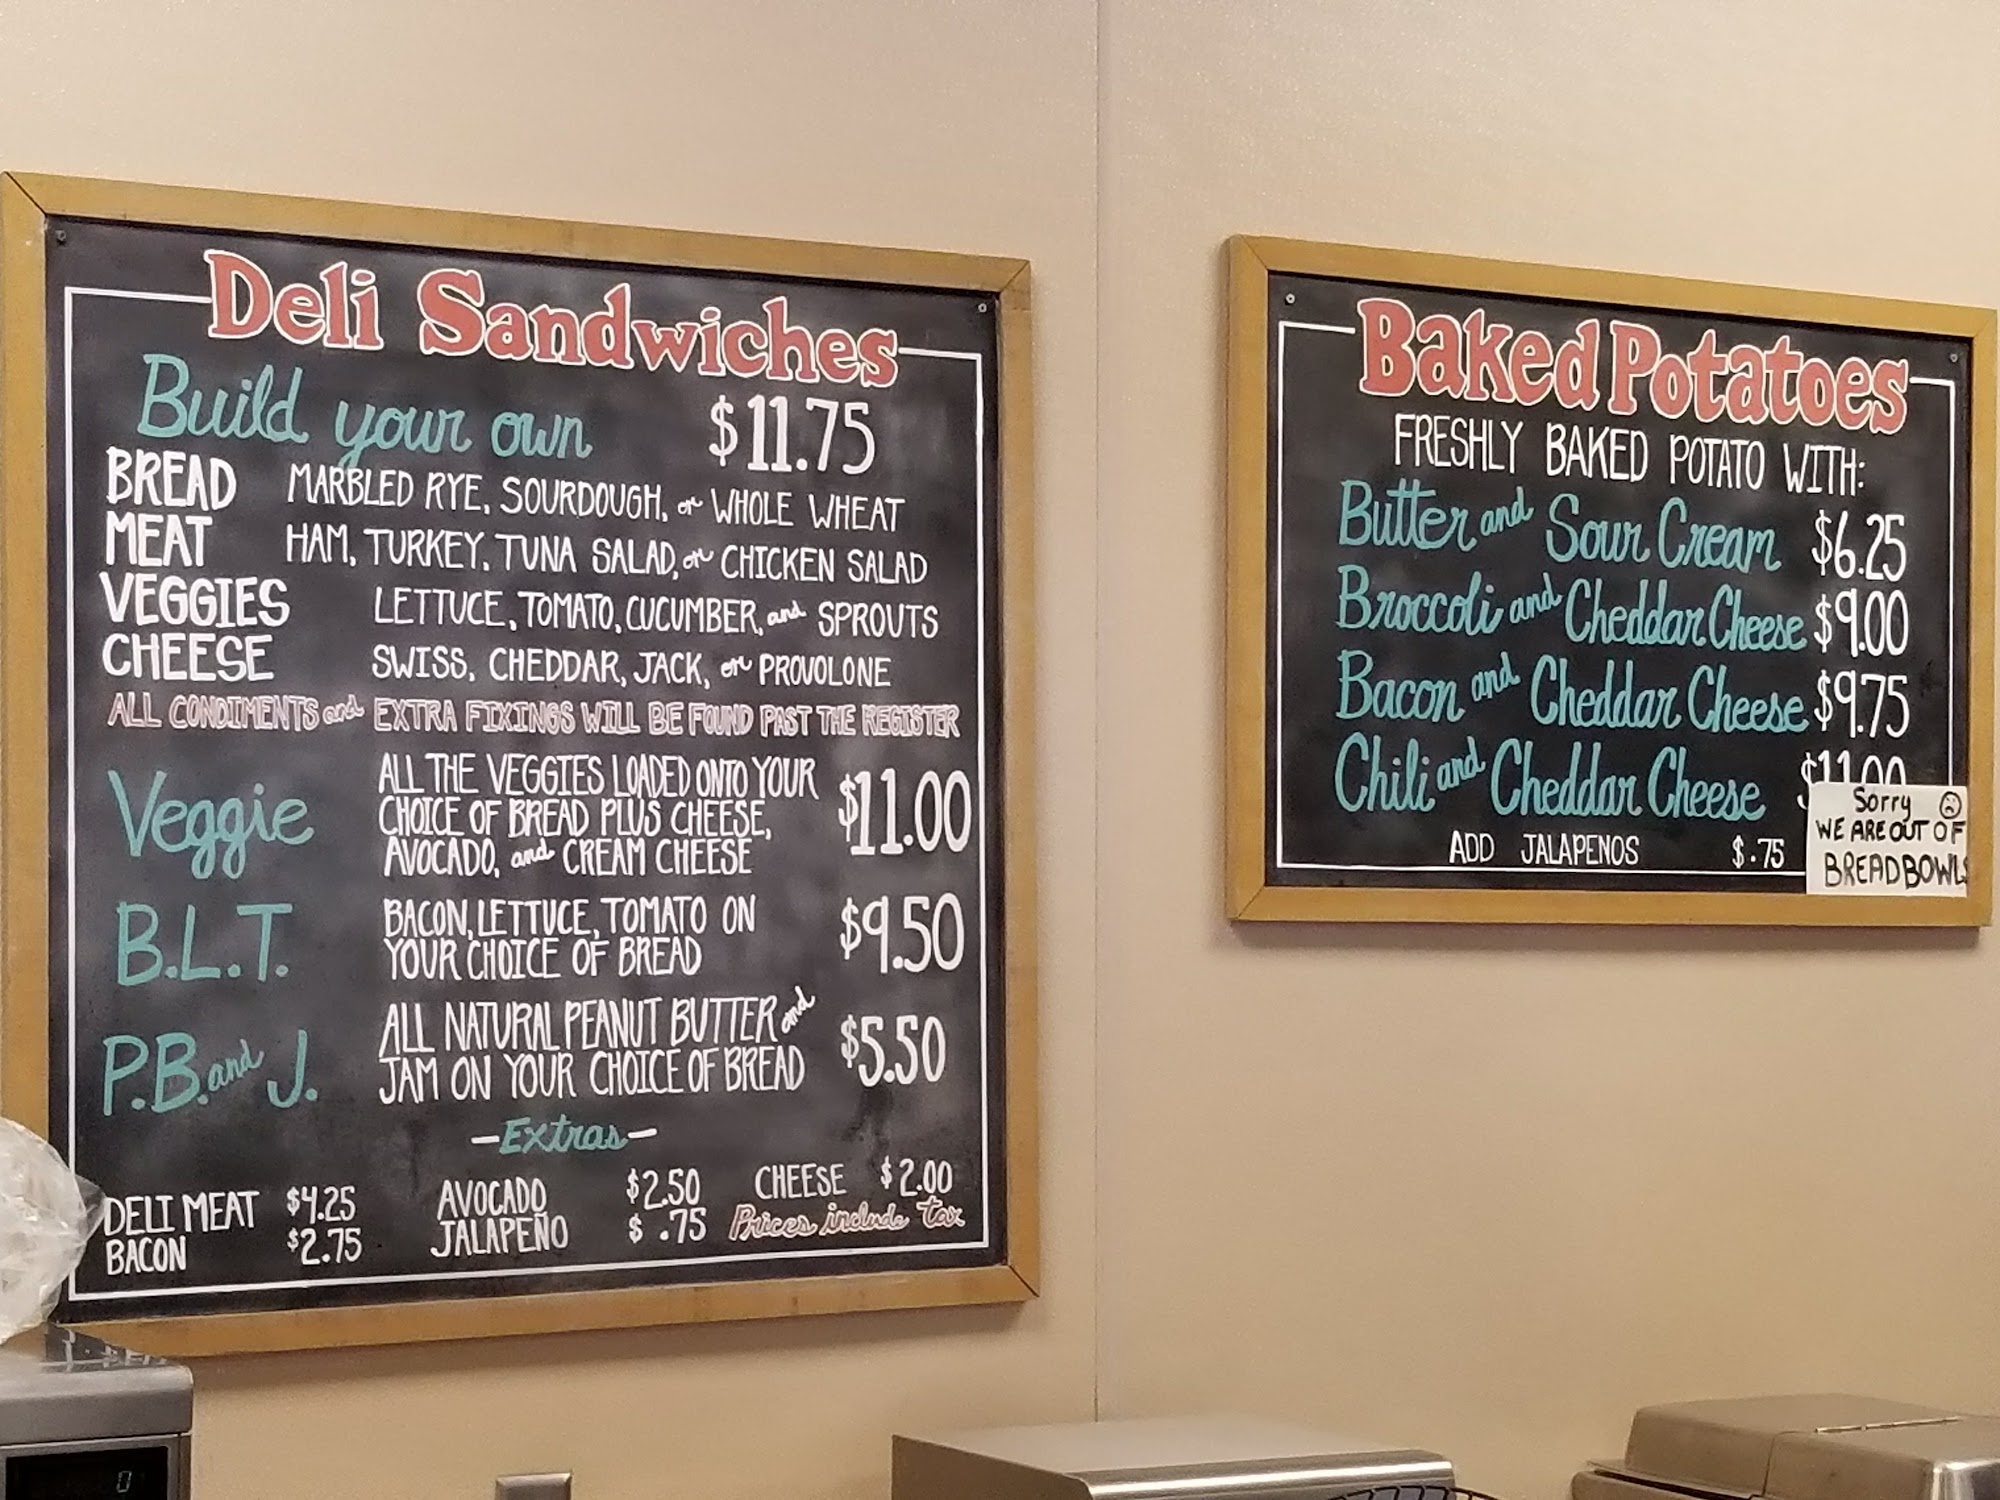 Deli Sandwiches
Build your own $11.75
BREAD MARBLED RYE, SOURDOUGH, or WHOLE WHEAT
MEAT HAM, TURKEY, TUNA SALAD, or CHICKEN SALAD
VEGGIES LETTUCE, TOMATO, CUCUMBER, and SPROUTS
CHEESE SWISS, CHEDDAR, JACK, or PROVOLONE
ALL CONDIMENTS and EXTRA FIXINGS WILL BE FOUND PAST THE REGISTER
Veggie ALL THE VEGGIES LOADED ONTO YOUR
CHOICE OF BREAD PLUS CHEESE,
AVOCADO, and CREAM CHEESE
$11.00
B.L.T. BACON, LETTUCE, TOMATO ON
YOUR CHOICE OF BREAD
$9.50
P.B. and J. ALL NATURAL PEANUT BUTTER and
JAM ON YOUR CHOICE OF BREAD
$5.50
—Extras—
DELI MEAT $4.25 AVOCADO $2.50 CHEESE $2.00
BACON $2.75 JALAPEÑO $.75 Prices include tax
Baked Potatoes
FRESHLY BAKED POTATO WITH:
Butter and Sour Cream $6.25
Broccoli and Cheddar Cheese $9.00
Bacon and Cheddar Cheese $9.75
Chili and Cheddar Cheese $11.00
ADD JALAPENOS $.75
Sorry
WE ARE OUT OF
BREAD BOWLS
0